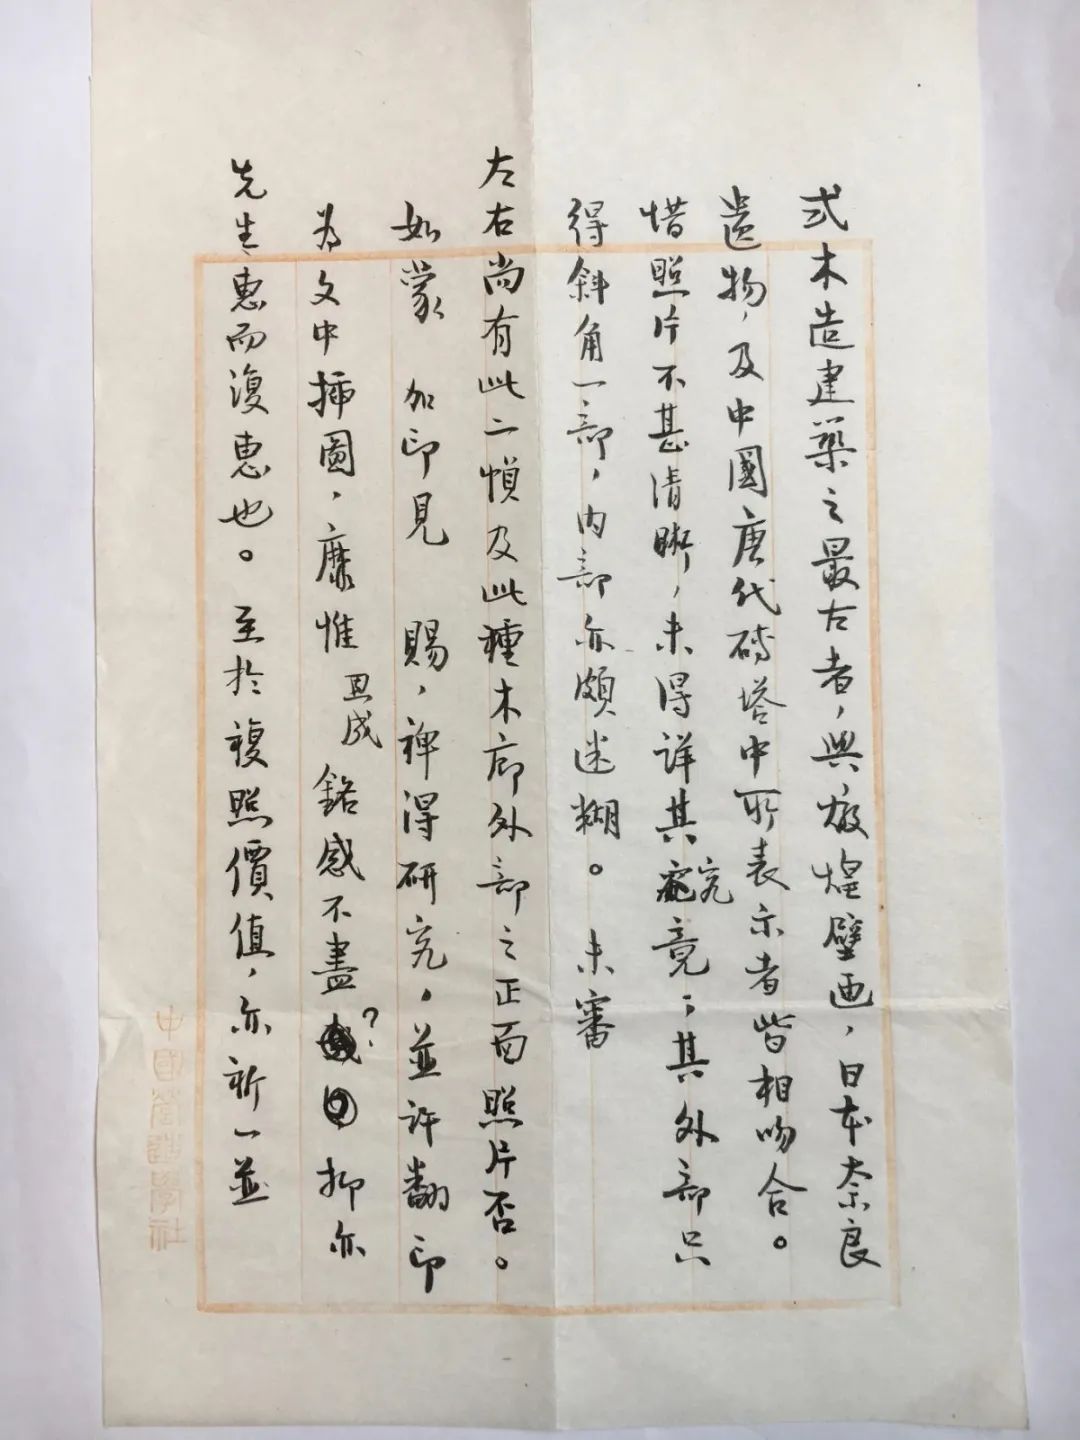 式木造建築之最古者，與燉煌壁画，日本奈良
遺物，及中國唐代磚塔中所表示者皆相吻合。
惜照片不甚清晰，未得詳其究竟；其外部只
得斜角一部，內部亦頗迷糊。未審
左右尚有此二幀及此種木廊外部之正面照片否。
如蒙 加印見 賜，俾得研究，並許翻印
為文中插圖，靡惟思成銘感不盡？抑亦
先生惠而復惠也。至於複照價值，亦祈一並
中國營造學社